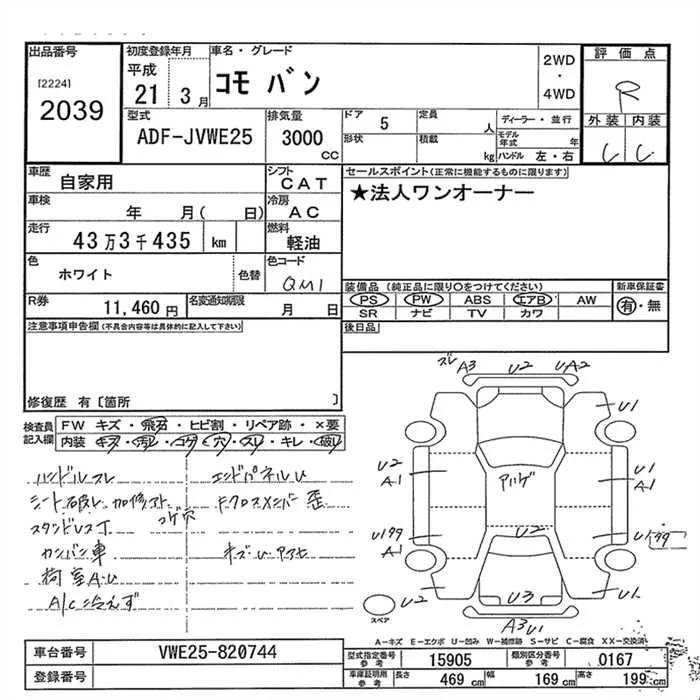 出品番号
[2224]
2039
初度登録年月
平成
21 3月
車名・グレード
コモ バン
2WD
・
4WD
評価点
R
外装 内装
C C
型式
ADF-JVWE25
排気量
3000 cc
ドア 5
定員 人
ディーラー・並行
形状
積載 kg
モデル年式 年
ハンドル 左・右
車歴
自家用
シフト
CAT
セールスポイント(正常に機能するものに限ります)
★法人ワンオーナー
車検
年 月( 日)
冷房
AC
走行
43万3千435 km
燃料
軽油
色
ホワイト
色替
色コード
QM1
装備品 (純正品に限り○をつけてください)
新車保証書
PS PW ABS エアB AW
有・無
SR ナビ TV カワ
R券
11,460円
名変通知期限
月 日
後日品
注意事項申告欄(不具合内容等は具体的に記入して下さい)
修復歴 有〔箇所 〕
検査員記入欄
FW キズ・飛石・ヒビ割・リペア跡・×要
内装 キズ・汚れ・コゲ・穴・スレ・キレ・破レ
ハンドルスレ
エンドパネルU
シート破レ 加修アト
コゲ穴
Fクロスメンバー歪
スタンドレス
カンバン車
キズU アマセ
荷室A.U
A/C冷えず
ズレ A3 U2 UA2
U1
U2
A1
アルゲ
U1
A1
U2
A1
U2
U2
U3
A3 U1
スペア
A-キズ E-エクボ U-凹み W-補修跡 S-サビ C-腐食 XX-交換済
車台番号
VWE25-820744
型式指定番号 参考
15905
類別区分番号 参考
0167
登録番号
車庫証明用 参考
長さ 469 cm
幅 169 cm
高さ 199 cm